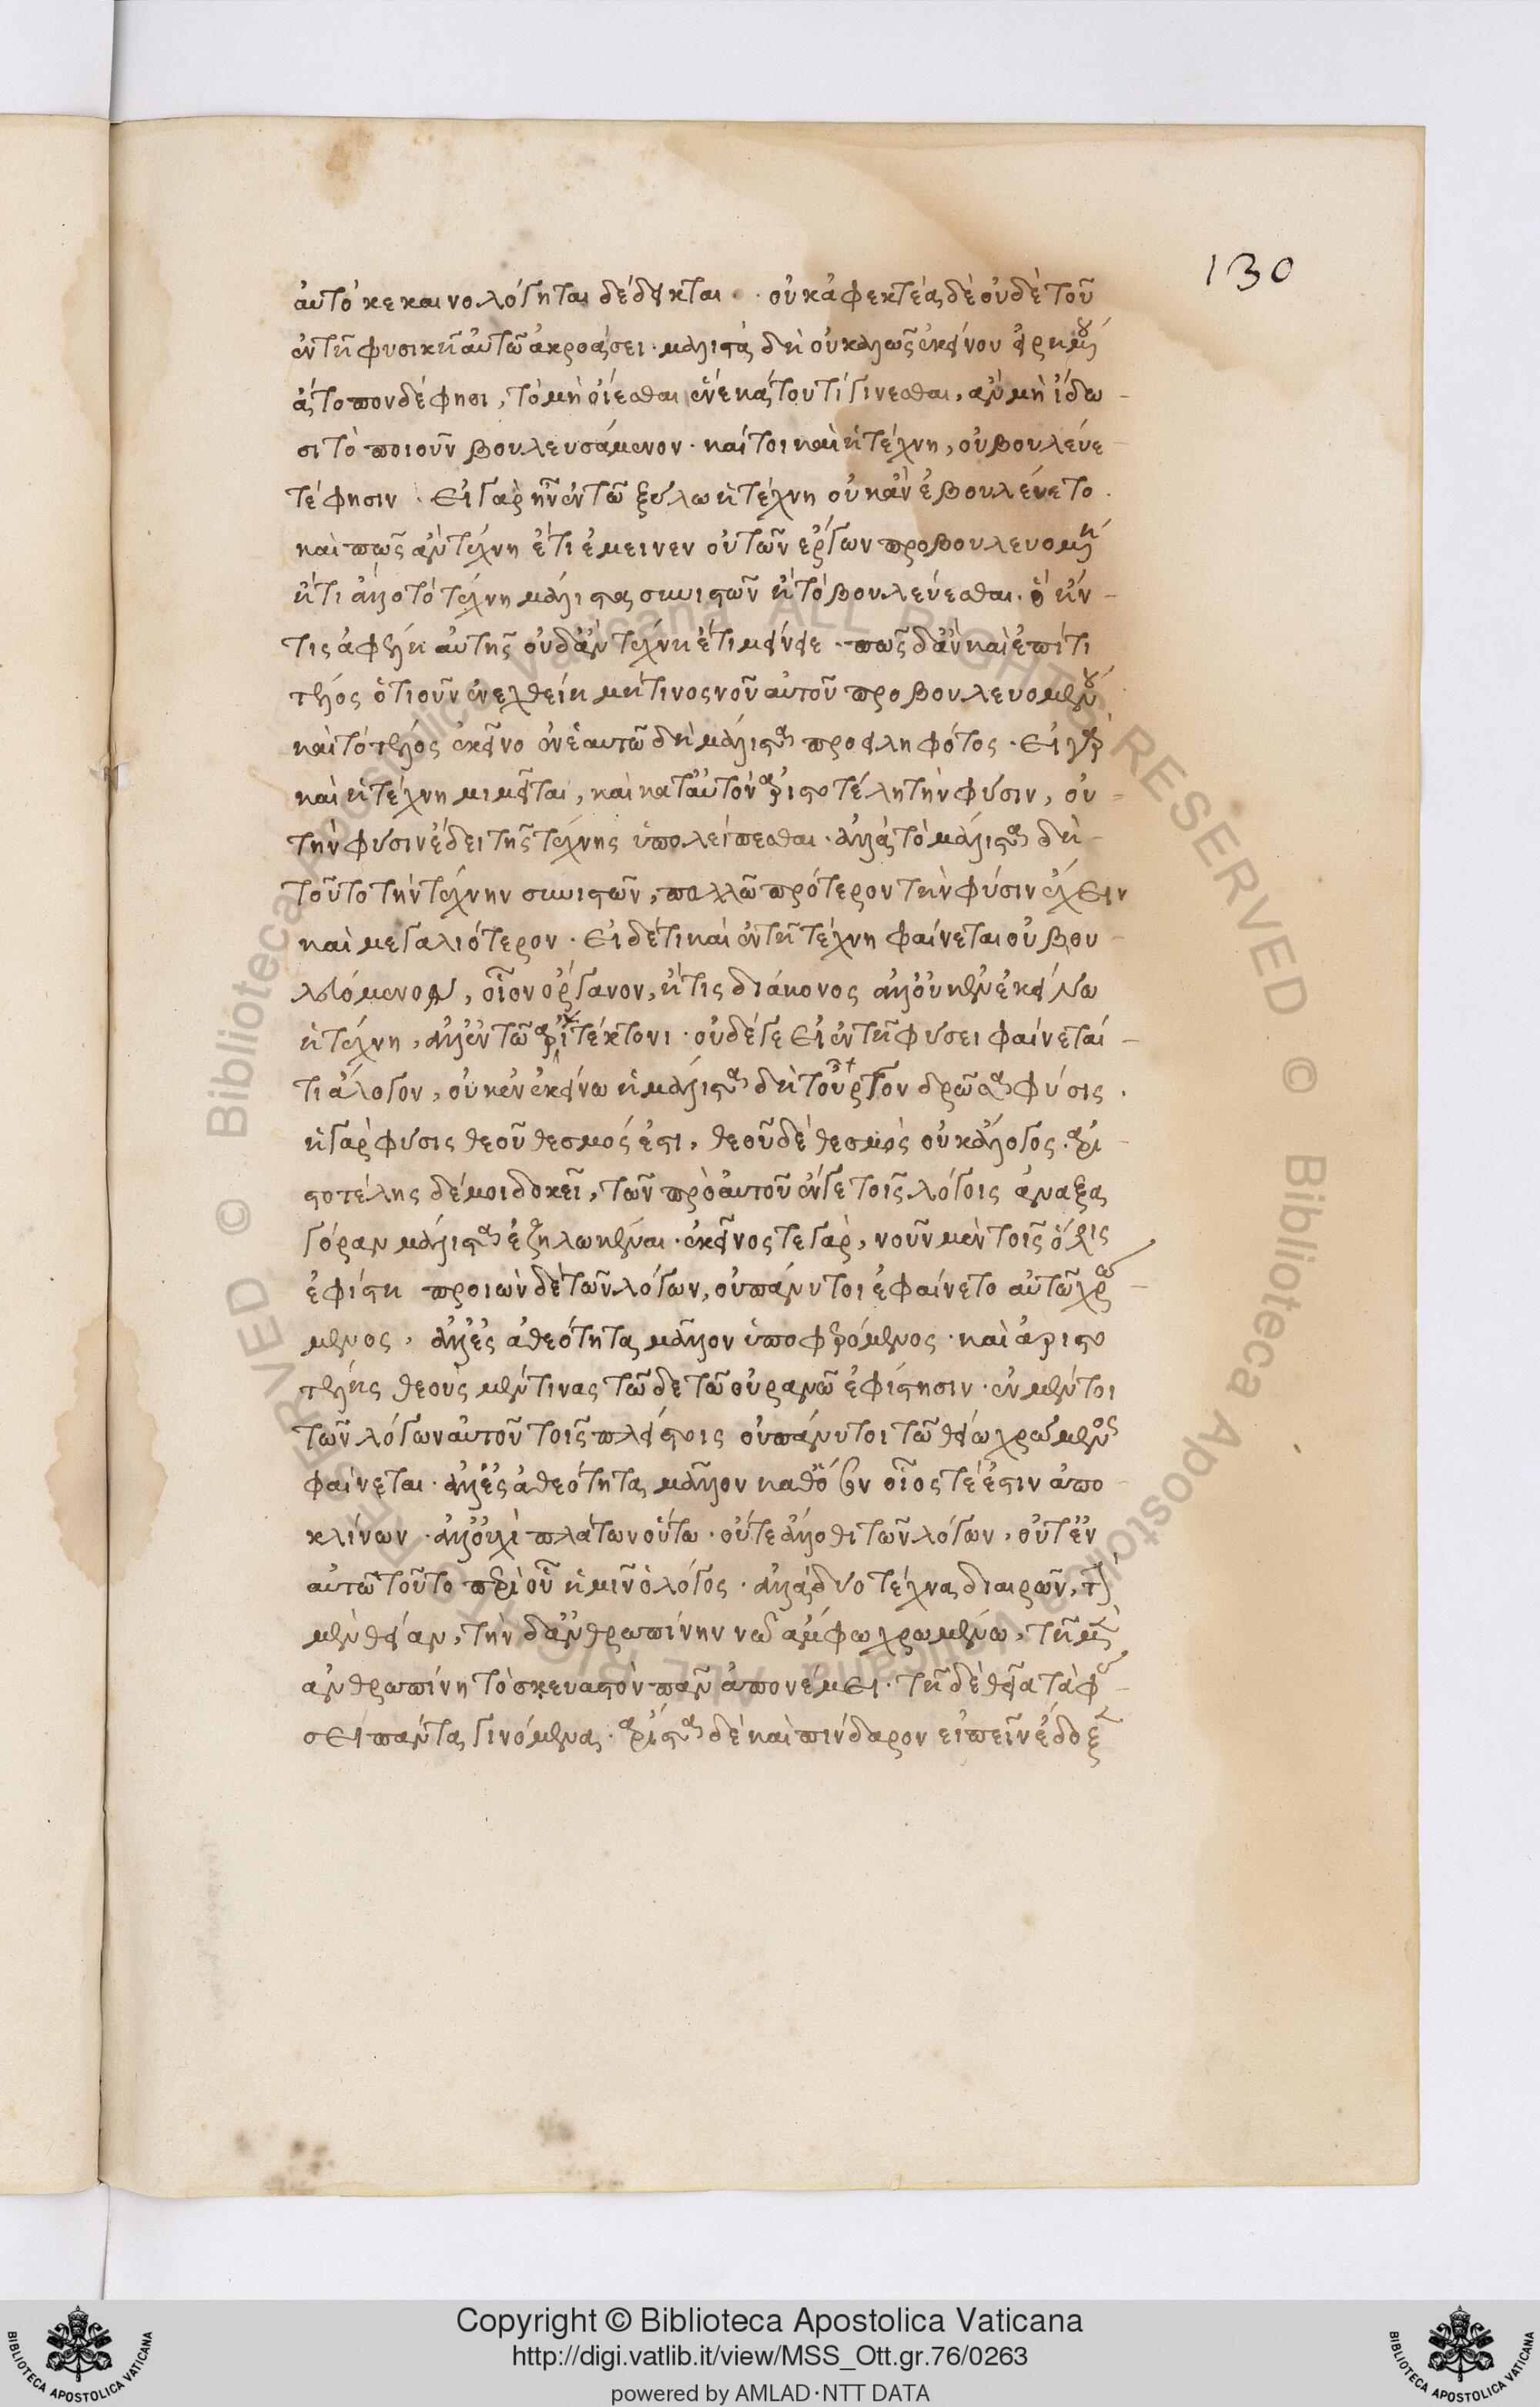 130
αὐτὸ κεκαινολόγηται δέδεικται. οὐκ ἀφεκτέα δὲ οὐδὲ τοῦ
ἐν τῇ φυσικῇ αὐτῶ ἀκροάσει μάλιστα δὴ οὐ καλῶς ἐκείνου εἰρημένου
ἄτοπον δέ φησι, τὸ μὴ οἴεσθαι ἕνεκά του τὶ γίνεσθαι, ἂν μὴ ἴδω-
σι τὸ ποιοῦν βουλευσάμενον. καίτοι καὶ ἡ τέχνη, οὐ βουλεύε-
τέ φησιν. εἰ γὰρ ἦν ἐν τῶ ξύλω ἡ τέχνη οὐκ ἂν ἐβουλεύετο.
καὶ πῶς ἂν τέχνη ἔτι ἔμεινεν οὐ τῶν ἔργων προβουλευομένη
ἤ τι ἄλλο τὸ τέχνη μάλιστα συνιστῶν ἢ τὸ βουλεύεσθαι. ὃ ἤν-
τις ἀφέλῃ αὐτῆς οὐδ' ἂν τέχνη ἔτι μείνειε. πῶς δ' ἂν καὶ ἐπί τι
τέλος ὁτιοῦν ἐνελθείη μή τινος νοῦ αὐτοῦ προβουλευομένου
καὶ τὸ τέλος ἐκεῖνο ἐν ἑαυτῶ δὴ μάλιστα προειληφότος. εἰ γὰρ
καὶ ἡ τέχνη μιμεῖται, καὶ κατ' αὐτὸν ἀριστοτέλη τὴν φύσιν, οὐ
τὴν φύσιν ἔδει τῆς τέχνης ὑπολείπεσθαι. ἀλλὰ τὸ μάλιστα δὴ
τοῦτο τὴν τέχνην συνιστῶν, πολλῶ πρότερον τὴν φύσιν ἔχειν
καὶ μεγαλιότερον. εἰ δέ τι καὶ ἐν τῇ τέχνη φαίνεται οὐ βου-
λευόμενον, οἷον ὄργανον, ἤ τις διάκονος ἀλλ' οὐκ ἐν ἐκείνω
ἡ τέχνη, ἀλλ' ἐν τῶ ἀρχιτέκτονι. οὐδέ γε εἰ ἐν τῇ φύσει φαίνεταί
τι ἄλογον, οὐκ ἐν ἐκείνω ἡ μάλιστα δὴ τοὖργον δρῶσα φύσις.
ἡ γὰρ φύσις θεοῦ θεσμός ἐστι, θεοῦ δὲ θεσμὸς οὐκ ἄλογος. ἀρι-
στοτέλης δέ μοι δοκεῖ, τῶν πρὸ αὐτοῦ ἔν γε τοῖς λόγοις ἀναξα
γόραν μάλιστα ἐζηλωκέναι. ἐκεῖνος τε γὰρ, νοῦν μὲν τοῖς ὅλοις
ἐφίστη προιὼν δὲ τῶν λόγων, οὐ πάνυ τοι ἐφαίνετο αὐτῶ χρώ-
μενος, ἀλλ' ἐς ἀθεότητα μᾶλλον ὑποφερόμενος. καὶ ἀριστο
τέλης θεοὺς μέν τινας τῶδε τῶ οὐρανῶ ἐφίστησιν. ἐν μέντοι
τῶν λόγων αὐτοῦ τοῖς πλείστοις οὐ πάνυ τοι τῶ θείω χρώμενος
φαίνεται. ἀλλ' ἐς ἀθεότητα μᾶλλον καθ' ὅσον οἷός τέ ἐστιν ἀπο
κλίνων. ἀλλ' οὐχὶ πλάτων οὕτω. οὔτε ἄλλοθι τῶν λόγων, οὔτ' ἐν
αὐτῶ τοῦτο περὶ οὗ ἡμῖν ὁ λόγος. ἀλλὰ δύο τέχνας διαιρῶν, τὴν
μὲν θείαν, τὴν δ' ἀνθρωπίνην νῶ ἄμφω χρωμένω, τῇ μὲν
ἀνθρωπίνη τὸ σκευαστὸν πᾶν ἀπονέμει. τῇ δὲ θεία τὰ φύ-
σει πάντα γινόμενα. ἄριστα δὲ καὶ πίνδαρον εἰπεῖν ἔδοξε
Copyright © Biblioteca Apostolica Vaticana
http://digi.vatlib.it/view/MSS_Ott.gr.76/0263
powered by AMLAD·NTT DATA